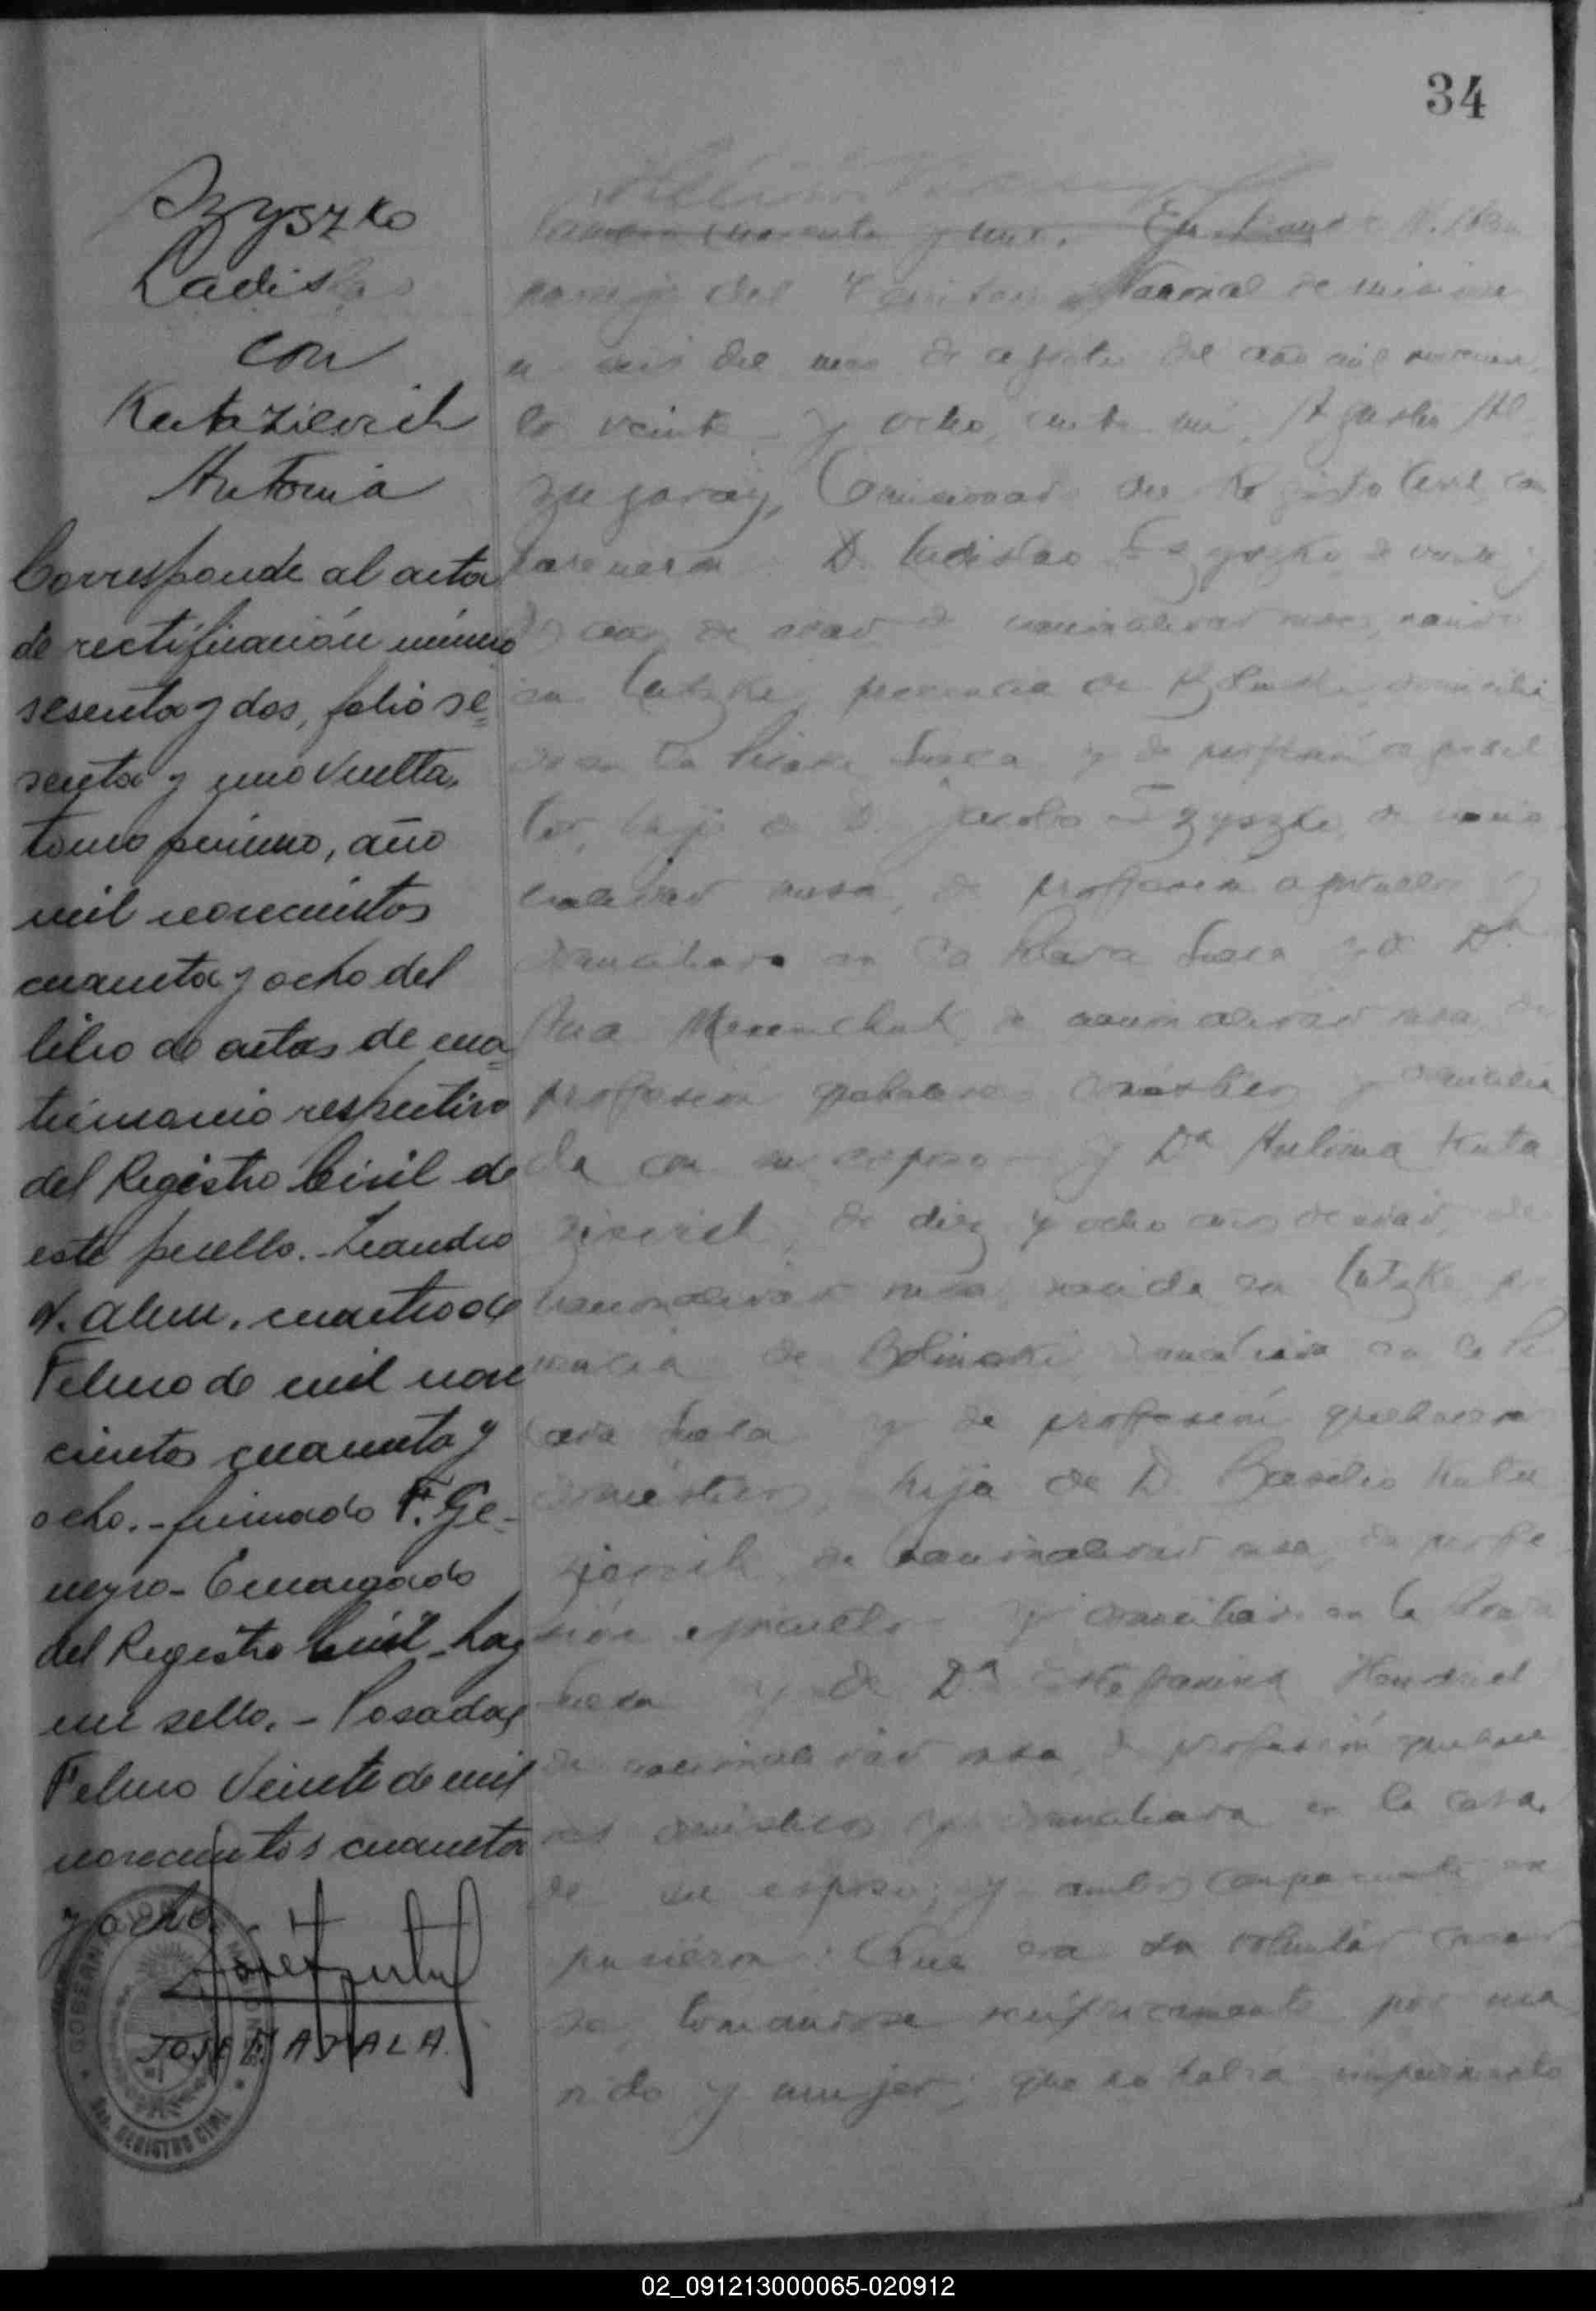 34
Szyszko
Ladislao
con
Katazievich
Antonia
Corresponde al acta
de rectificación número
sesenta y dos, folio se=
senta y uno vuelta,
tomo primero, año
mil novecientos
cuarenta y ocho del
libro de actas de ma=
trimonio respectivo
del Registro Civil de
este pueblo.- Leandro
N. Alem, cuatro de
Febrero de mil nove
cientos cuarenta y
ocho.- firmado F. Ge-
neyro- Encargado
del Registro Civil- hay
un sello.- Posadas,
Febrero Veinte de mil
novecientos cuarenta
y ocho.
JOSE F. AYALA.
GOBERNACION MISIONES
REGISTRO CIVIL
cuarenta y uno. En Leandro N. Alem
paraje del Territorio Nacional de Misiones
a seis del mes de agosto del año mil novecien
to veinte y ocho, ante mí, Agustín Al
zugaray, Comisionado del Registro Civil com
parecieron D. Ladislao Szyszko de veinte y
años de edad de nacionalidad ruso, nacido
en Lutzke, provincia de domicilia
do en la Picada Sueca y de profesión agricul
tor, hijo de D. Jacobo Szyszko, de nacio
nalidad rusa, de profesión agricultor y
domiciliado en la Picada Sueca y de Dª
Ana de nacionalidad rusa, de
profesión quehaceres domésticos y domicilia
da con su esposo - y Dª Antonia Kata
zievich, de diez y ocho años de edad, de
nacionalidad rusa, nacida en Lutzke pro
vincia de domiciliada en la Pi
cada Sueca y de profesión quehaceres
domésticos, hija de D. Basilio Kata
zievich, de nacionalidad rusa, de profe
sión agricultor y domiciliado en la Picada
Sueca y de Dª
de nacionalidad rusa, de profesión quehace
res domésticos y domiciliada en la casa
de su esposo; y ambos comparecientes ex
pusieron: Que era su voluntad casar
se, tomándose recíprocamente por ma
rido y mujer; que no había impedimento
02_091213000065-020912